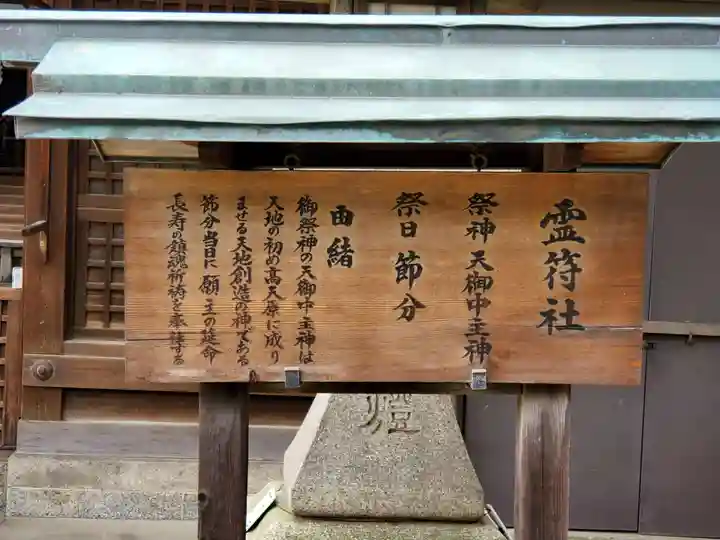 霊符社
祭神 天御中主神
祭日 節分
由緒
御祭神の天御中主神は
天地の初め高天原に成り
ませる天地創造の神である
節分当日に願主の延命
長寿の鎮魂祈祷を奉誦する
燈